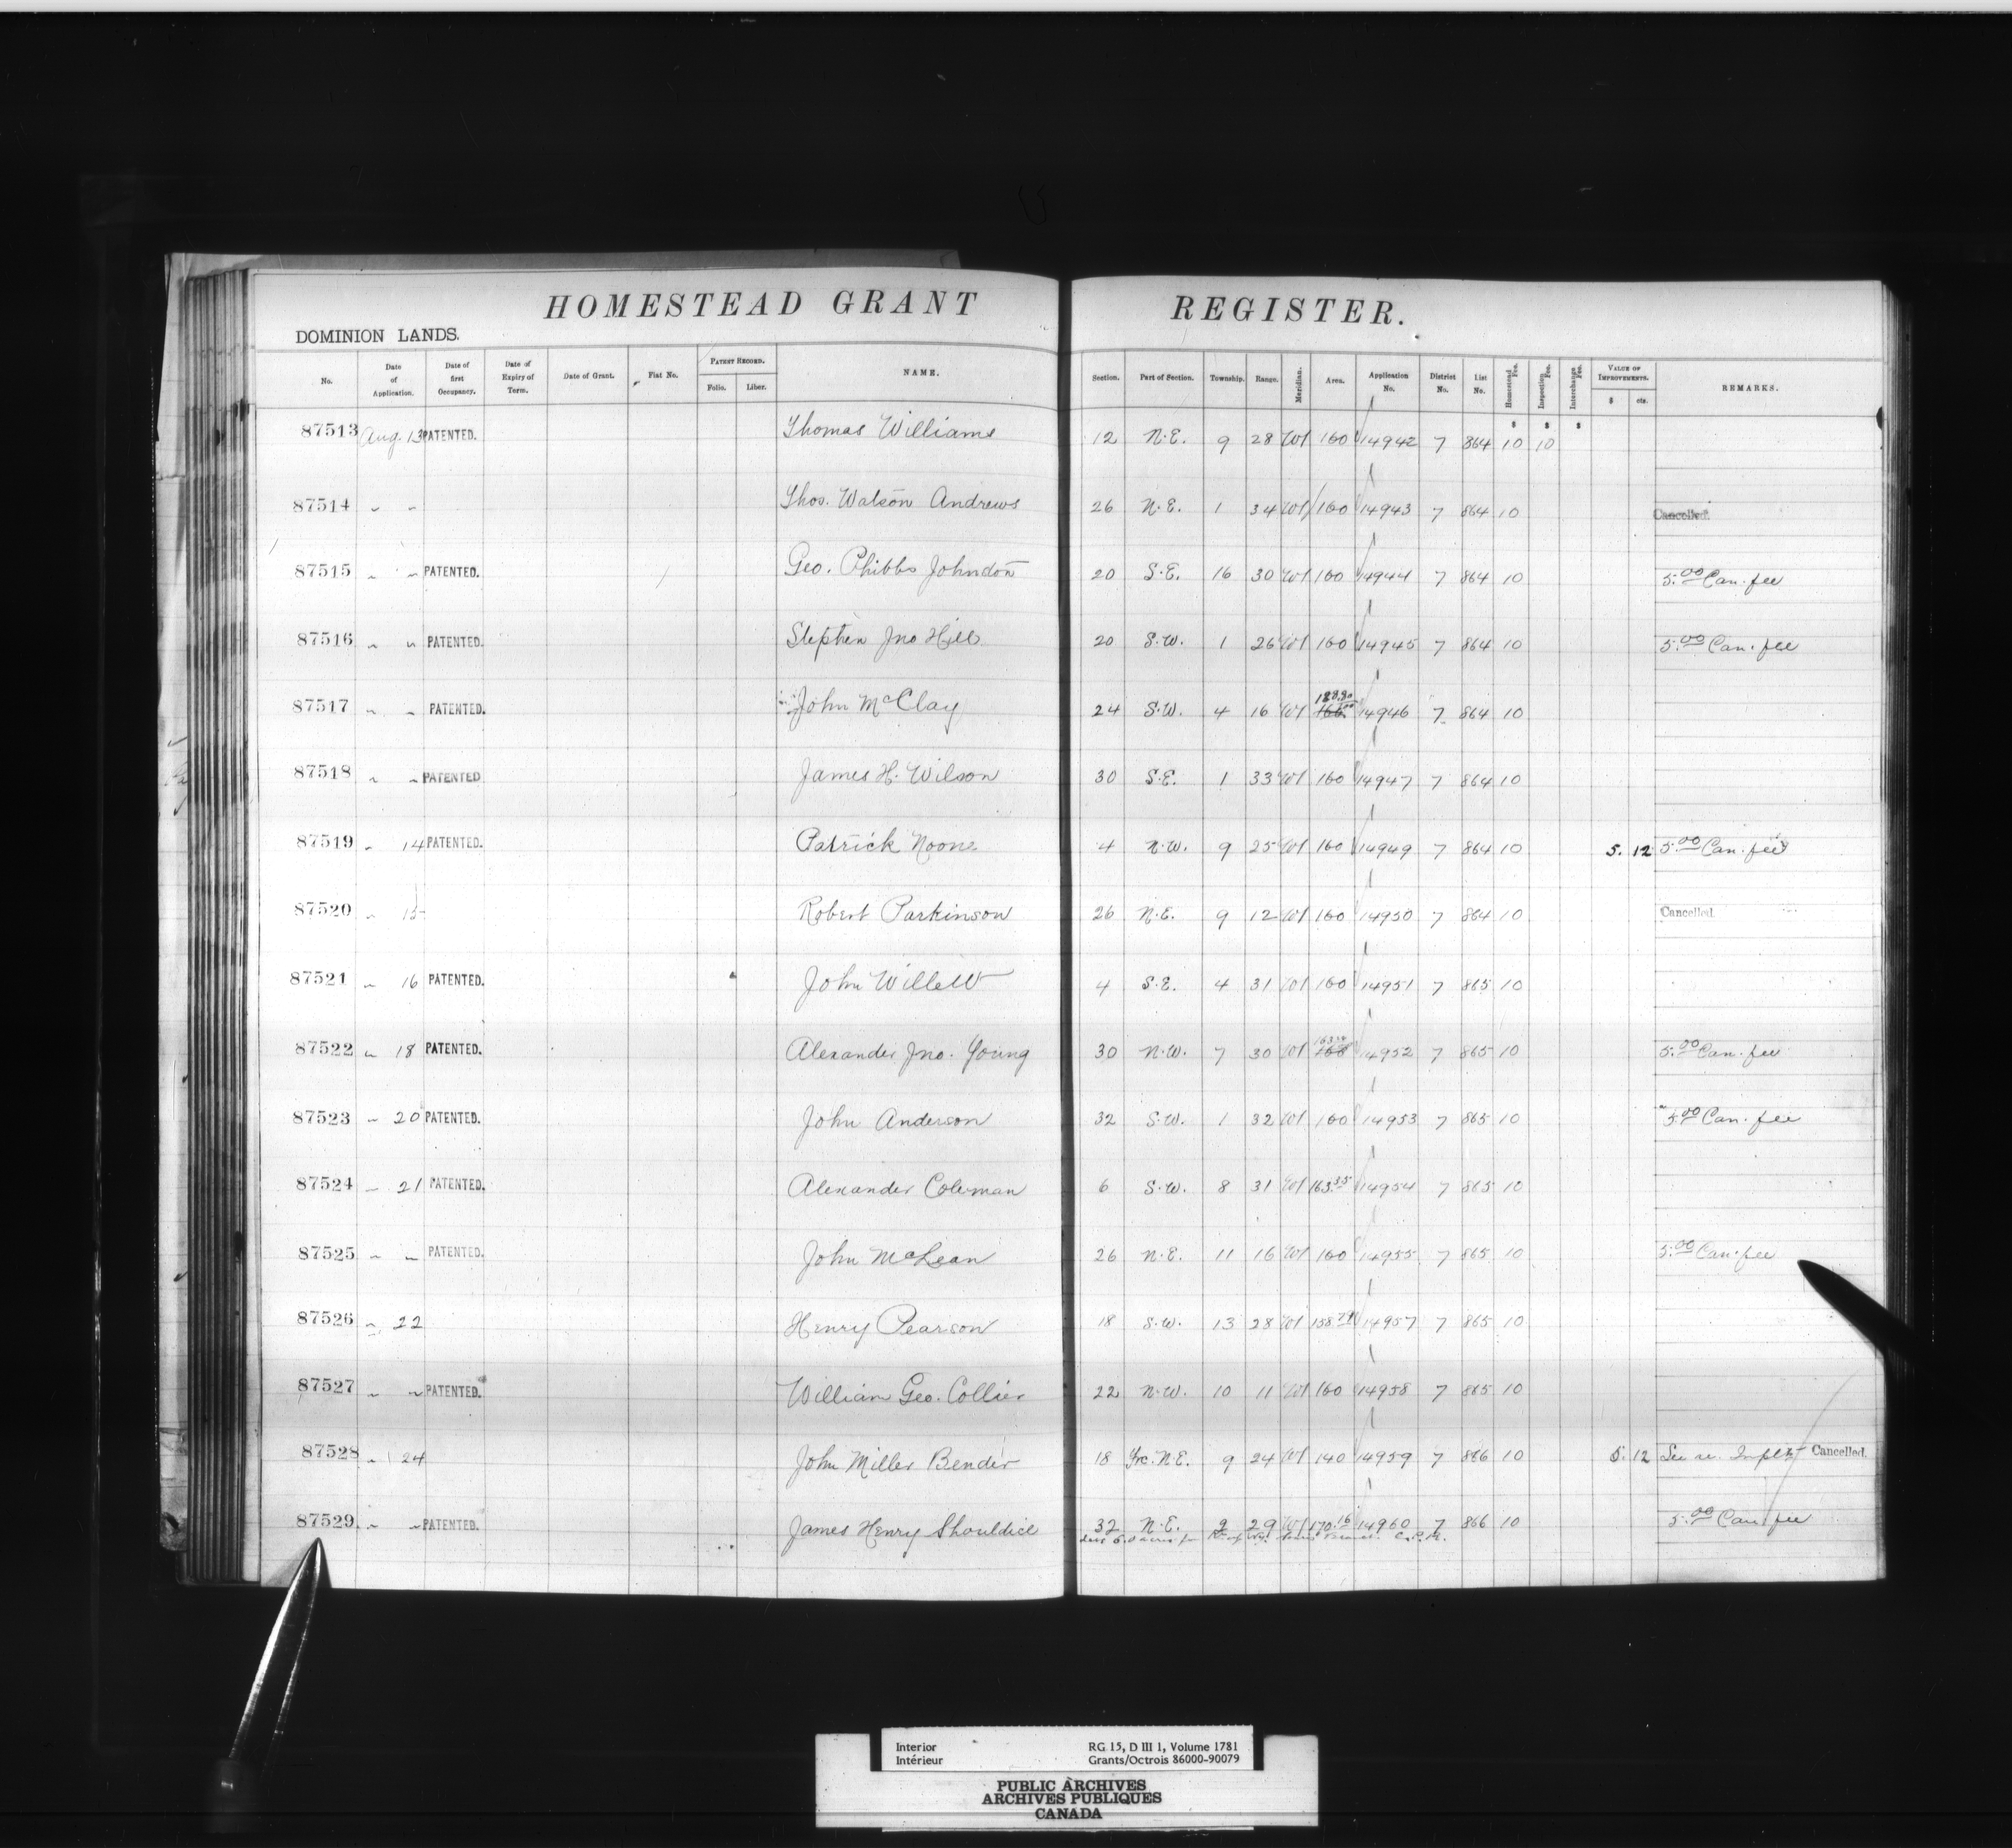 HOMESTEAD GRANT REGISTER.
DOMINION LANDS.
No. Date of Application. Date of first Occupancy. Date of Expiry of Term. Date of Grant. Fiat No. PATENT RECORD. Folio. Liber. NAME. Section. Part of Section. Township. Range. Meridian. Area. Application No. District No. List No. Homestead Fee. Inspection Fee. Interchange Fee. VALUE OF IMPROVEMENTS. $ cts. REMARKS.
$ $ $
87513 Aug. 13 PATENTED. Thomas Williams 12 N.E. 9 28 W1 160 14942 7 864 10 10
87514 " " Thos. Watson Andrews 26 N.E. 1 34 W1 160 14943 7 864 10 Cancelled.
87515 " " PATENTED. Geo. Phibbs Johnston 20 S.E. 16 30 W1 160 14944 7 864 10 5.00 Can. fee
87516 " " PATENTED. Stephen Jno Hill 20 S.W. 1 26 W1 160 14945 7 864 10 5.00 Can. fee
87517 " " PATENTED. John McClay 24 S.W. 4 16 W1 14946 7 864 10
87518 " " PATENTED James H. Wilson 30 S.E. 1 33 W1 160 14947 7 864 10
87519 " 14 PATENTED. Patrick Noone 4 N.W. 9 25 W1 160 14949 7 864 10 5. 12 5.00 Can. fee
87520 " 15 Robert Parkinson 26 N.E. 9 12 W1 160 14950 7 864 10 Cancelled.
87521 " 16 PATENTED. John Willett 4 S.E. 4 31 W1 160 14951 7 865 10
87522 " 18 PATENTED. Alexander Jno. Young 30 N.W. 7 30 W1 160 14952 7 865 10 5.00 Can. fee
87523 " 20 PATENTED. John Anderson 32 S.W. 1 32 W1 160 14953 7 865 10 5.00 Can. fee
87524 " 21 PATENTED. Alexander Coleman 6 S.W. 8 31 W1 163.35 14954 7 865 10
87525 " " PATENTED. John McLean 26 N.E. 11 16 W1 160 14955 7 865 10 5.00 Can. fee
87526 " 22 Henry Pearson 18 S.W. 13 28 W1 14957 7 865 10
87527 " " PATENTED. William Geo. Collier 22 N.W. 10 11 W1 160 14958 7 865 10
87528 " 24 John Miller Bender 18 Frc. N.E. 9 24 W1 140 14959 7 866 10 5. 12 See re. Cancelled.
87529 " " PATENTED. James Henry Shouldice 32 N.E. 2 29 W1 170.16 14960 7 866 10 5.00 Can. fee
C.P.R.
Interior RG 15, D III 1, Volume 1781
Intérieur Grants/Octrois 86000-90079
PUBLIC ARCHIVES
ARCHIVES PUBLIQUES
CANADA